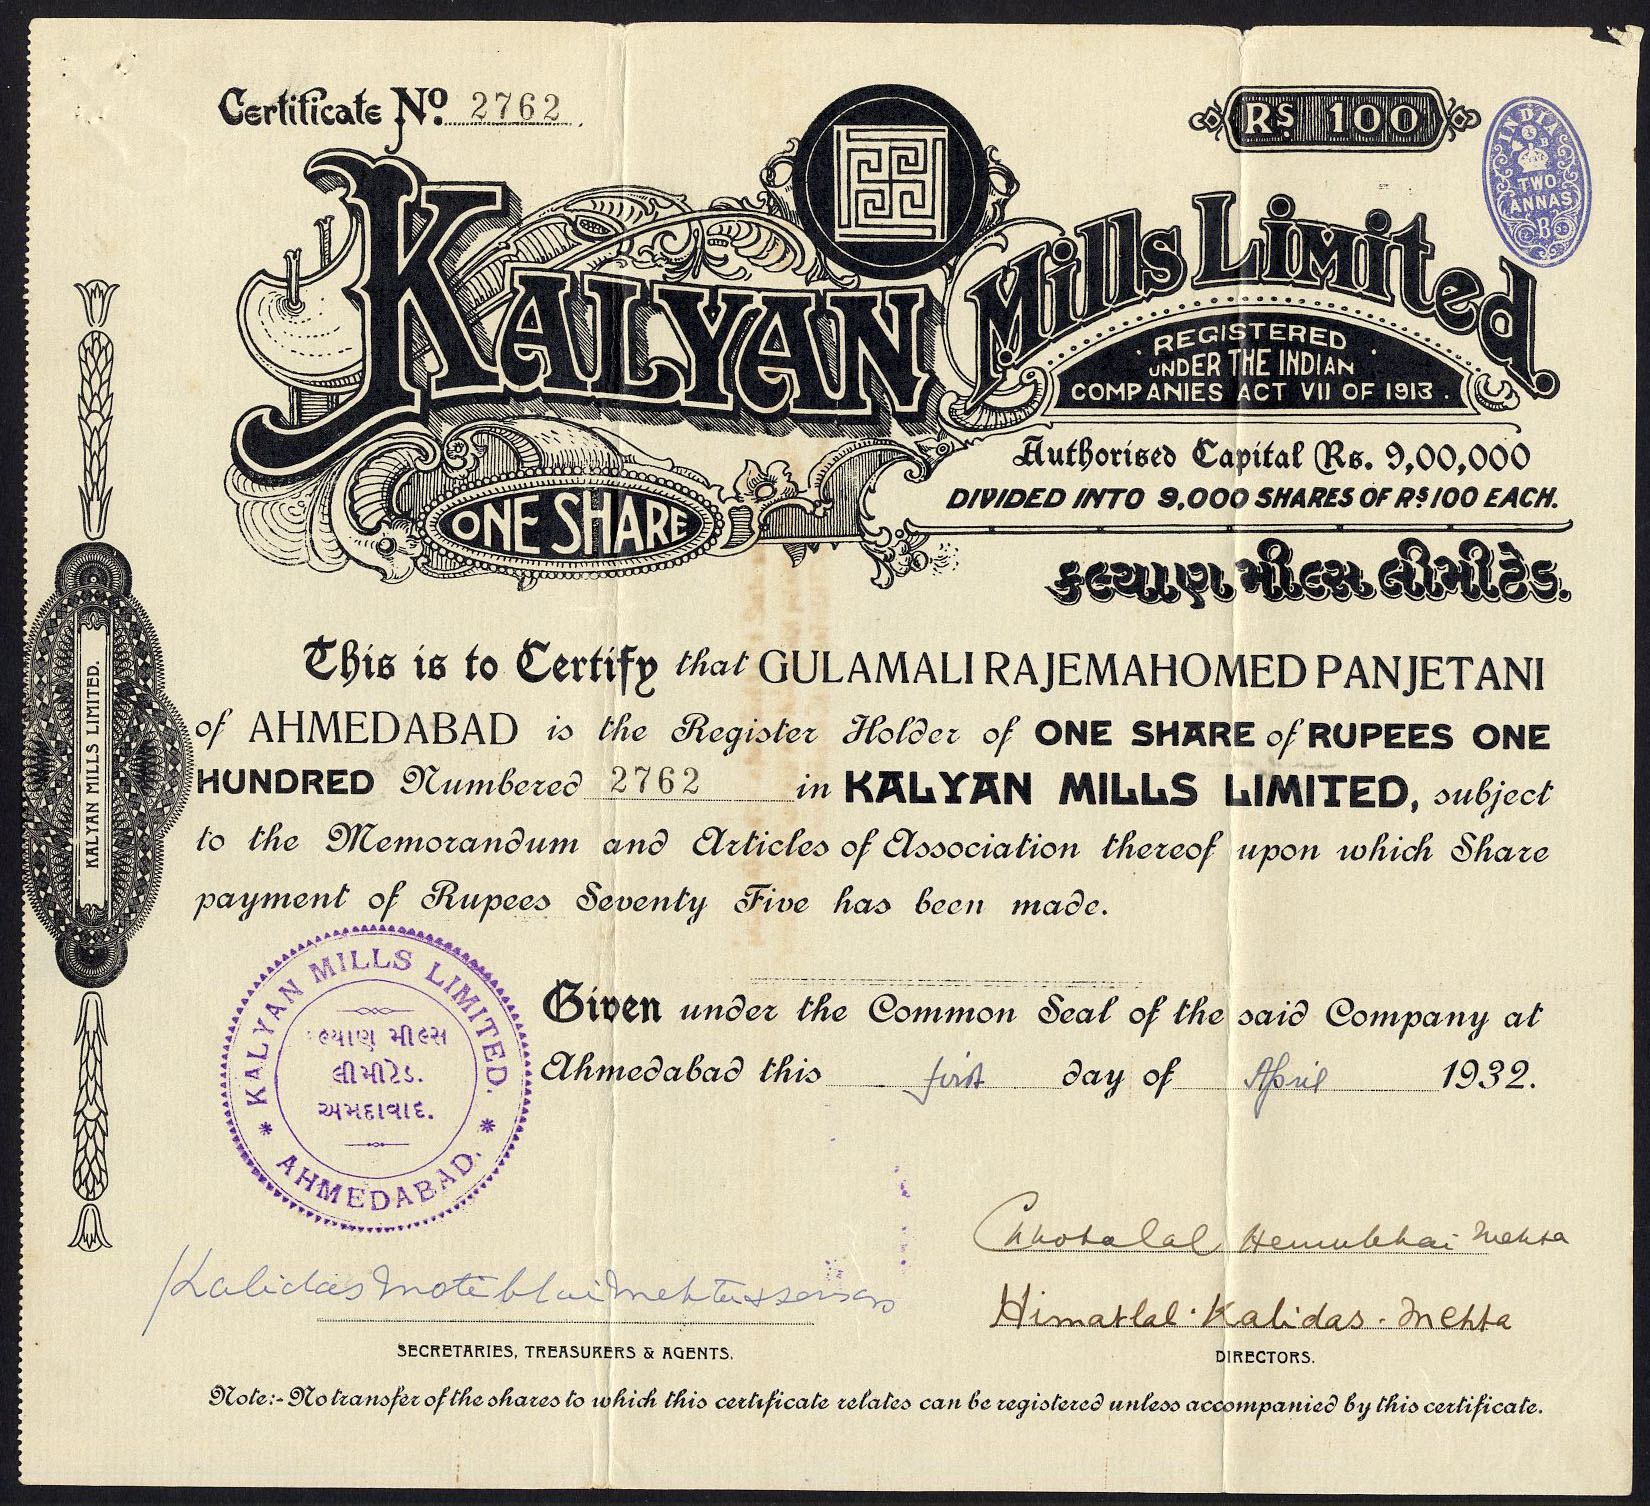 Certificate No. 2762
RS 100
INDIA
TWO
ANNAS
B
KALYAN Mills Limited.
REGISTERED
UNDER THE INDIAN
COMPANIES ACT VII OF 1913.
Authorised Capital Rs. 9,00,000
DIVIDED INTO 9,000 SHARES OF RS 100 EACH.
ONE SHARE
કલ્યાણ મીલ્સ લીમીટેડ.
KALYAN MILLS LIMITED.
This is to Certify that GULAMALI RAJEMAHOMED PANJETANI
of AHMEDABAD is the Register Holder of ONE SHARE of RUPEES ONE
HUNDRED Numbered 2762 in KALYAN MILLS LIMITED, subject
to the Memorandum and Articles of Association thereof upon which Share
payment of Rupees Seventy Five has been made.
Given under the Common Seal of the said Company at
Ahmedabad this first day of April 1932.
KALYAN MILLS LIMITED.
લ્યાણ મીલ્સ
લીમીટેડ.
અમદાવાદ.
* AHMEDABAD. *
Chhotalal Hemubhai Mehta
Kalidas Motibhai Mehta & sons
Himatlal. Kalidas. Mehta
SECRETARIES, TREASURERS & AGENTS.
DIRECTORS.
Note:- No transfer of the shares to which this certificate relates can be registered unless accompanied by this certificate.